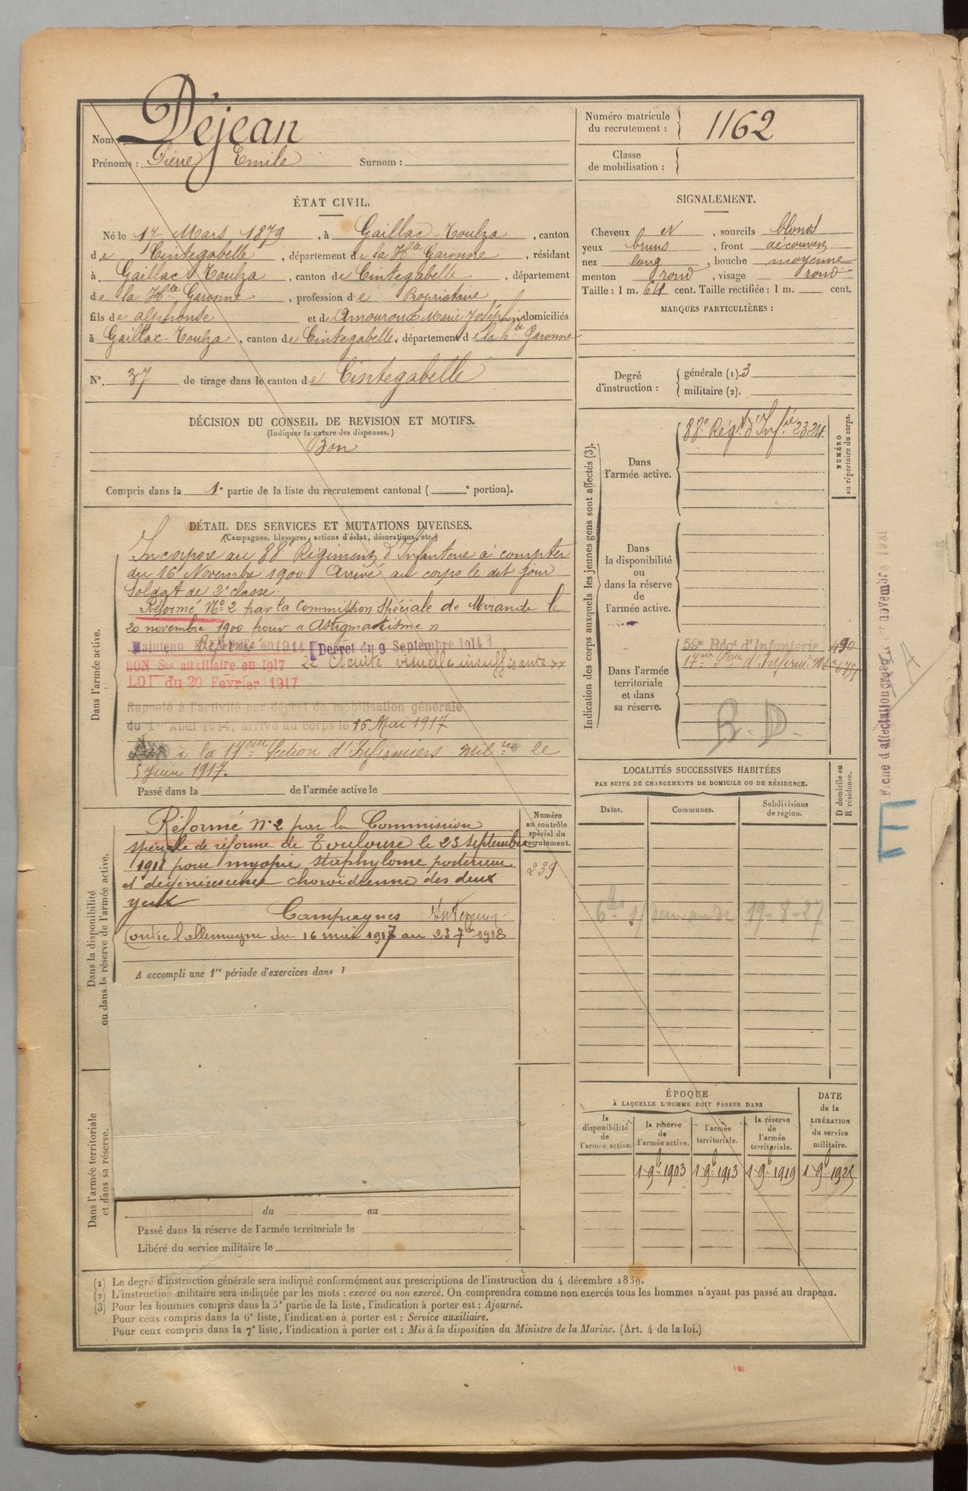 Nom : Déjean
Prénoms : Pierre Emile Surnom :
Numéro matricule du recrutement : 1162
Classe de mobilisation :
ÉTAT CIVIL.
Né le 17 Mars 1879, à Gaillac Toulza, canton
de Cintegabelle, département de la Hte Garonne, résidant
à Gaillac Toulza, canton de Cintegabelle, département
de la Hte Garonne, profession de Propriétaire
fils de alphonse et de Amouroux Marie Joséphine domiciliés
à Gaillac-Toulza, canton de Cintegabelle, département de la hte Garonne
N°. 37 de tirage dans le canton de Cintegabelle
SIGNALEMENT.
Cheveux N, sourcils blonds
yeux bruns, front découvert
nez long, bouche moyenne
menton rond, visage rond
Taille : 1 m. 64 cent. Taille rectifiée : 1 m. cent.
MARQUES PARTICULIÈRES :
Degré d'instruction : générale (1). 3
militaire (2).
DÉCISION DU CONSEIL DE REVISION ET MOTIFS.
(Indiquer la nature des dispenses.)
Bon
Compris dans la 1e partie de la liste du recrutement cantonal ( e portion).
DÉTAIL DES SERVICES ET MUTATIONS DIVERSES.
(Campagnes, blessures, actions d'éclat, décorations, etc.)
Dans l'armée active.
Incorporé au 88e Régiment d'Infanterie à compter
du 16 Novembre 1900 Arrivé au corps le dit jour
Soldat de 2e classe.
Réformé No 2 par la Commission Spéciale de Mirande le
20 novembre 1900 pour « Astigmatisme »
Maintenu Réformé en 1914 Décret du 9 Septembre 1914
BON Sce auxiliaire en 1917 Acuité visuelle insuffisante
LOI du 20 Février 1917
Rappelé à l'activité par décret de mobilisation générale
du 1er Août 1914, arrivé au corps le 16 Mai 1917
à la 17eme Section d'Infirmiers milres le
5 Juin 1917.
Passé dans la de l'armée active le
Dans la disponibilité ou dans la réserve de l'armée active.
Réformé n°2 par la Commission
spéciale de réforme de Toulouse le 23 septembre
1918 pour myopie staphylome postérieur
et dégénérescence choroidienne des deux
yeux
Campagnes
Contre l'allemagne du 16 mai 1917 au 23 7bre 1918
A accompli une 1re période d'exercices dans l
Numéro au contrôle spécial du recrutement.
239
Dans l'armée territoriale et dans sa réserve.
du au
Passé dans la réserve de l'armée territoriale le
Libéré du service militaire le
Indication des corps auxquels les jeunes gens sont affectés (3).
NUMÉRO au répertoire du corps.
Dans l'armée active.
88e Régt d'Infie 2324
Dans la disponibilité ou dans la réserve de l'armée active.
Dans l'armée territoriale et dans sa réserve.
59e Régt d'Infanterie 490
17eme Son d'Infirmiers
R. D.
LOCALITÉS SUCCESSIVES HABITÉES
PAR SUITE DE CHANGEMENTS DE DOMICILE OU DE RÉSIDENCE.
Dates. Communes. Subdivisions de région. D domicile ou R résidence.
demande 19-8-27
ÉPOQUE
À LAQUELLE L'HOMME DOIT PASSER DANS
la disponibilité de l'armée active.
la réserve de l'armée active.
l'armée territoriale.
la réserve de l'armée territoriale.
DATE de la LIBÉRATION du service militaire.
1 9bre 1903 1 9bre 1913 1 9bre 1919 1 9bre 1925
Fiche d'affectation
(1) Le degré d'instruction générale sera indiqué conformément aux prescriptions de l'instruction du 4 décembre 1889.
(2) L'instruction militaire sera indiquée par les mots : exercé ou non exercé. On comprendra comme non exercés tous les hommes n'ayant pas passé au drapeau.
(3) Pour les hommes compris dans la 5e partie de la liste, l'indication à porter est : Ajourné.
Pour ceux compris dans la 6e liste, l'indication à porter est : Service auxiliaire.
Pour ceux compris dans la 7e liste, l'indication à porter est : Mis à la disposition du Ministre de la Marine. (Art. 4 de la loi.)